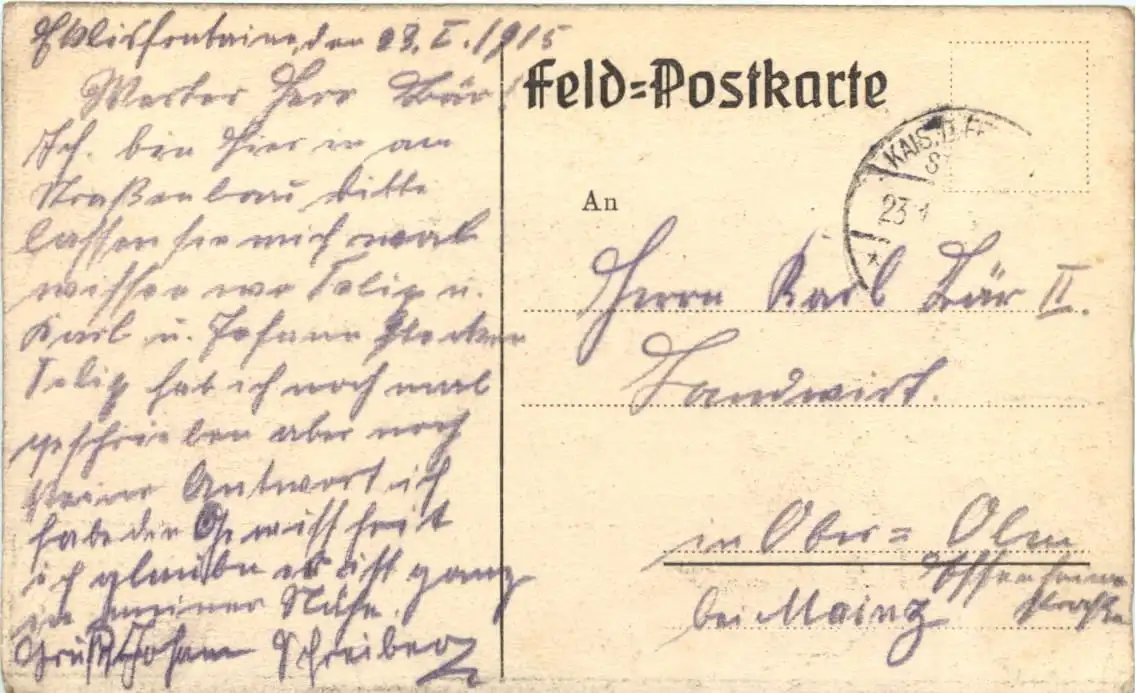 den 23. I. 1915
Werter Herr Bär!
Ich bin hier in am
Straßenbau bitte
lassen sie mich mal
wissen wo Felix u.
Karl u. Johann
Felix hab ich noch mal
geschrieben aber noch
keine Antwort ich
habe den Gewissheit
ich glaube er ist ganz
in meiner Nähe.
Gruß Johann Schreiber
Feld=Postkarte
KAIS. D. FE
S
23 1
An
Herrn Karl Bär II.
Landwirt.
in Ober=Olm
bei Mainz